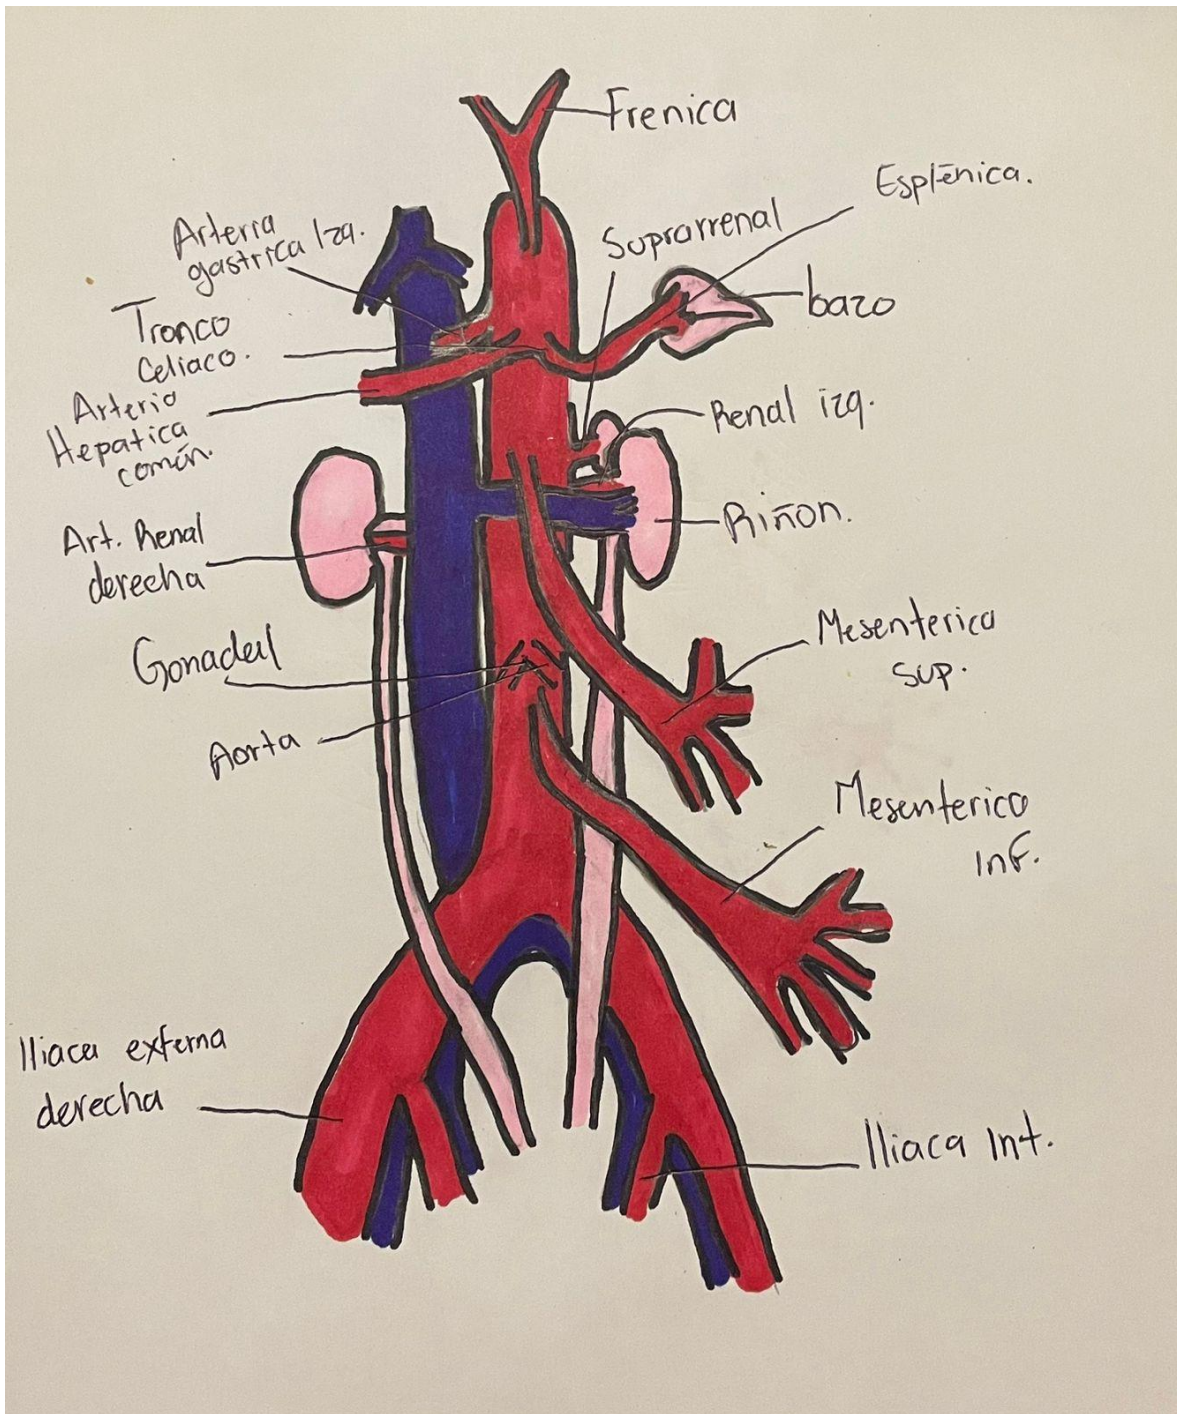 Frenica
Esplénica.
Arteria
gastrica Izq.
Suprarrenal
bazo
Tronco
Celiaco.
Arteria
Hepatica
común.
Renal izq.
Art. Renal
derecha
Riñon.
Gonadal
Mesenterica
sup.
Aorta
Mesenterica
Inf.
Iliaca externa
derecha
Iliaca Int.